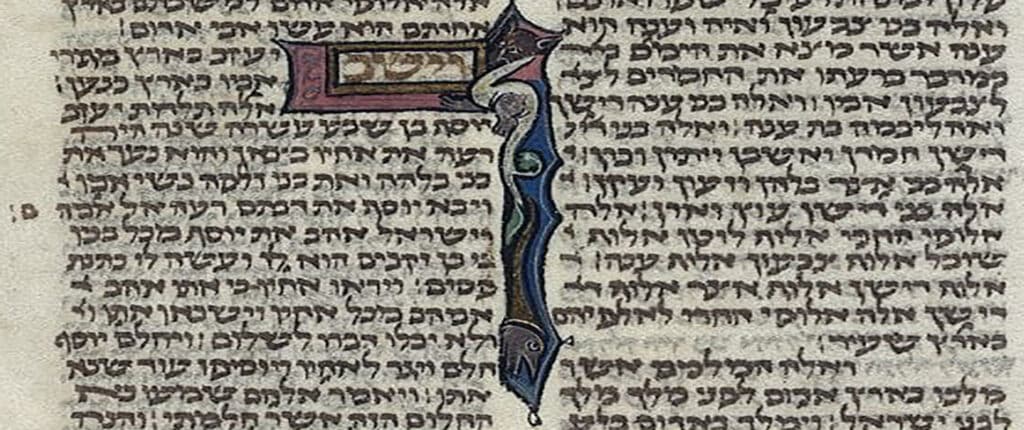 ואלה בני צבעון ואיה וענה הוא
ענה אשר מצא את הימים
במדבר ברעתו את החמרים
לצבעון אביו: ואלה בני ענה דישן
ואהליבמה בת ענה: ואלה בני
דישן חמדן ואשבן ויתרן וכרן:
אלה בני אצר בלהן וזעון ועקן:
אלה בני דישן עוץ וארן: אלה
אלופי החרי אלוף לוטן אלוף
שובל אלוף צבעון אלוף ענה:
אלוף דישן אלוף אצר אלוף
דישן אלה אלופי החרי לאלפיהם
בארץ שעיר:
ואלה המלכים אשר
מלכו בארץ אדום לפני מלך מלך
לבני ישראל: וימלך באדום בלע
אחזתם הוא עשו אבי אדום:
וישב
יעקב בארץ מגורי
אביו בארץ כנען:
אלה תלדות יעקב
יוסף בן שבע עשרה שנה היה
רעה את אחיו בצאן והוא נער את
בני בלהה ואת בני זלפה נשי אביו
ויבא יוסף את דבתם רעה אל אביהם
וישראל אהב את יוסף מכל בניו
כי בן זקנים הוא לו ועשה לו כתנת
פסים: ויראו אחיו כי אתו אהב
אביהם מכל אחיו וישנאו אתו
ולא יכלו דברו לשלום: ויחלם יוסף
חלום ויגד לאחיו ויוספו עוד שנא
אתו: ויאמר אליהם שמעו נא
החלום הזה אשר חלמתי: והנה